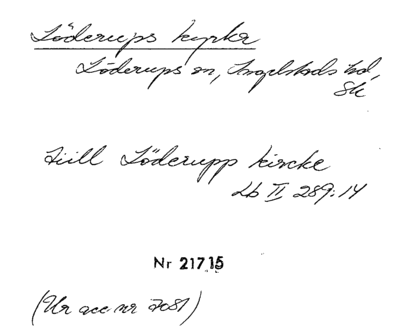 Löderups kyrka
Löderups sn, Ingelstads hd,
Sk
till Löderupp kircke
Lb II 289:14
Nr 21715
(Ur acc. nr 7081)